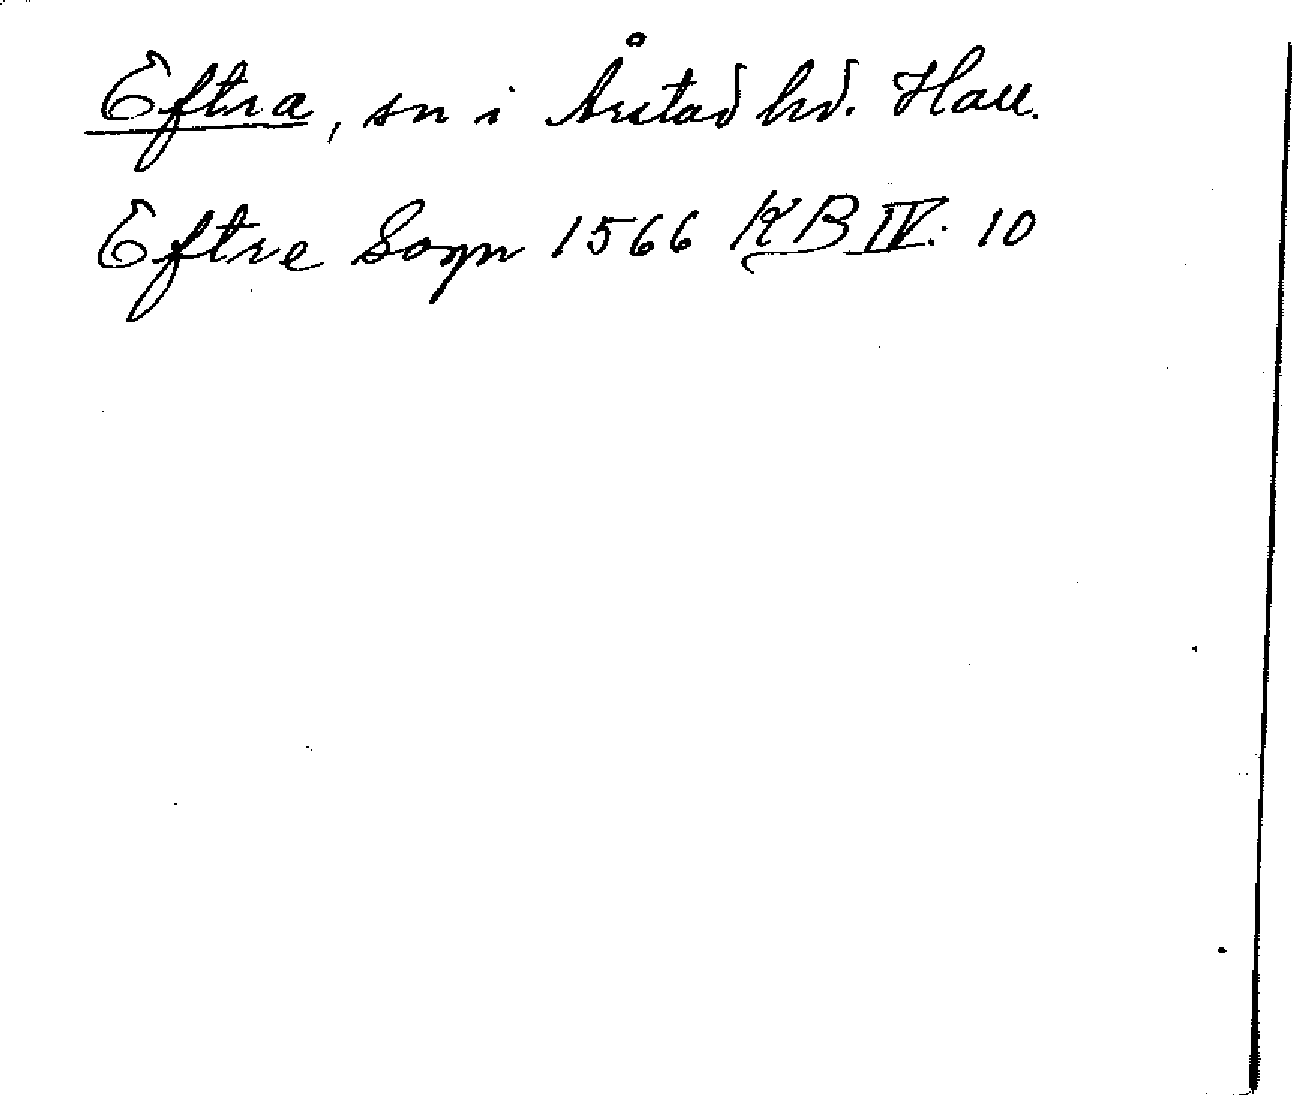 Eftra, sn i Årstad hd. Hall.
Eftre Sogn 1566 KB IV: 10